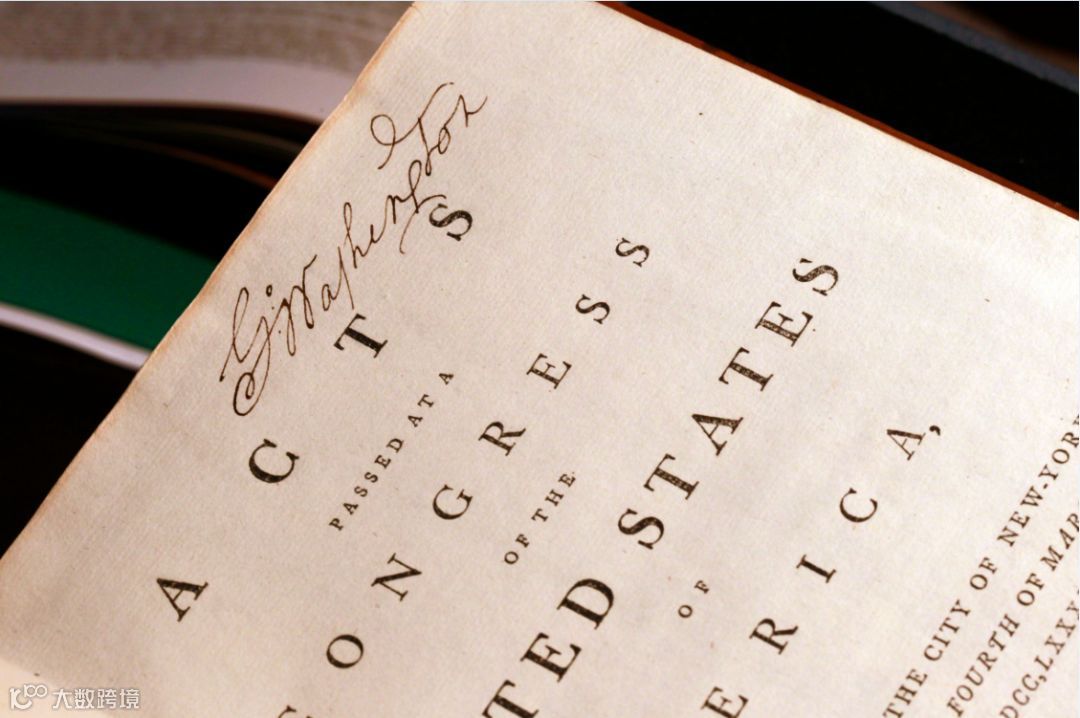 G:Washington
ACTS
PASSED AT A
CONGRESS
OF THE
TED STATES
OF
ERICA,
THE CITY OF NEW-YOR
FOURTH OF MAR
DCC,LXXX
大数跨境